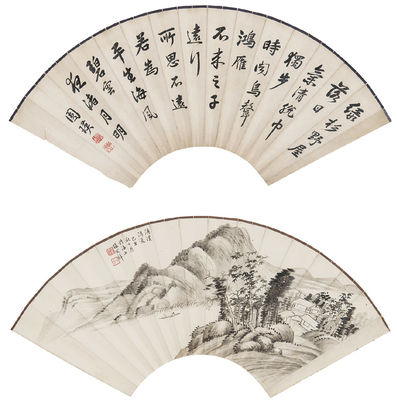 綠杉野屋
落日
氣清脫巾
獨步
時聞鳥聲
鴻雁
不來之子
遠行
所思不遠
若為
平生海風
碧雲
夜渚月明
國